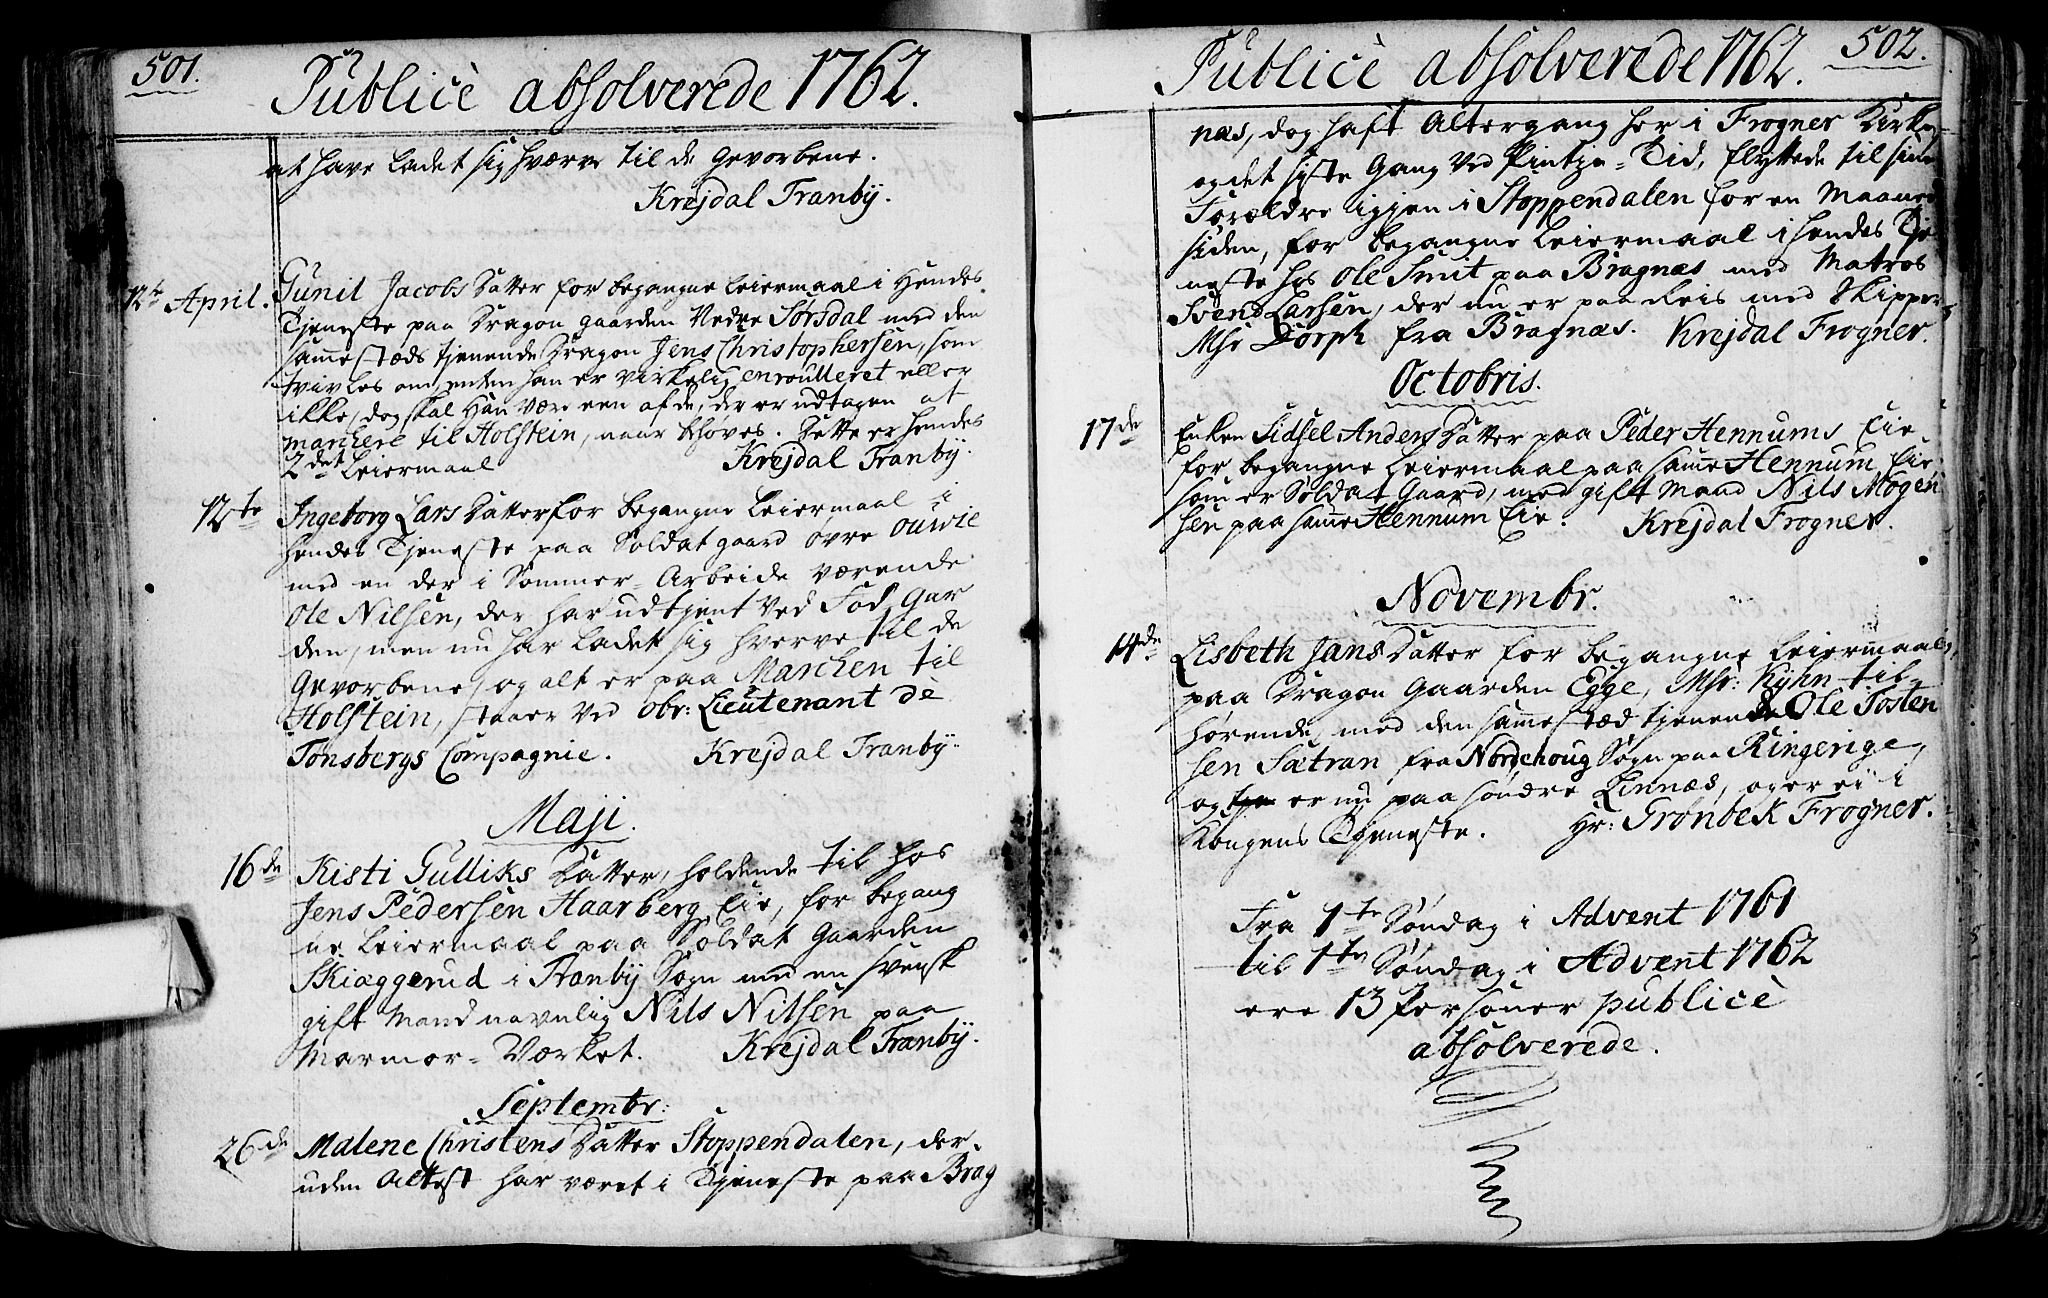 501.
Publicè absolverede 1762.
at have ladet sig hværve til de Gevorbene.
Krejdal Tranby.
12te April. Gunil Jacobs Datter for begangne Leiermaal i Hendes
Tjeneste paa Dragon gaarden Nedre Sørsdal med den
samestæds tjenende Dragon Jens Christophersen, som
tvivles om, enten han er virkelig enroulleret eller
ikke, dog skal Han være een af de, der er udtagen at
marchere til Holstein, naar behøves. Dette er hendes
2det Leiermaal Krejdal Tranby.
12te Ingeborg Lars Datter for begangne Leiermaal i
hendes Tjeneste paa Soldat gaard øvre Ouwie
med en der i Sommer-Arbeide værende
Ole Nilsen, der har udtjent ved Fod Gar
den, men nu har ladet sig hverve til de
Gevorbene, og alt er paa Marchen til
Holstein, staaer ved Obr: Lieutenant de
Tønsbergs Compagnie. Krejdal Tranby.
Maji.
16de Kisti Gulliks Datter, holdende til hos
Jens Pedersen Haarberg Eie, for begang
ne Leiermaal paa Soldat Gaarden
Skiæggerud i Tranby Sogn med en svensk
gift Mand navnlig Nils Nilsen paa
Marmor-Værket. Krejdal Tranby.
Septembr:
26de Malene Christens Datter Stoppendalen, der
uden Attest har været i Tjeneste paa Brag
502.
Publicè absolverede 1762.
næs, dog haft Altergang her i Frogner Kirke,
og det sidste Gang ved Pintze-Tid, flyttede til sine
Forældre igjen i Stoppendalen for en Maaned
siden, for begangne Leiermaal i hendes Tje
neste hos Ole Smit paa Bragnæs med Matros
Svend Larsen, der nu er paa Reis med Skipper
Msr Dorph fra Bragnæs. Krejdal Frogner.
Octobris.
17de Enken Sidsel Anders Datter paa Peder Hennums Eie
for begangne Leiermaal paa same Hennum Eie,
som er Soldat Gaard, med gift Mand Nils Mogen
sen paa same Hennum Eie. Krejdal Frogner.
Novembr.
14de Lisbeth Jans Datter for begangne Leiermaal
paa Dragon Gaarden Egge, Msr: Kyhn til-
hørende, med den samestæd tjenende Ole Tosten
sen Sætran fra Nordrehoug Sogn paa Ringerige,
og er nu paa søndre Linnæs, og er ei i
Kongens Tjeneste. Hr: Grønbek Frogner.
Fra 1te Søndag i Advent 1761
til 1te Søndag i Advent 1762
ere 13 Personer publicè
absolverede.